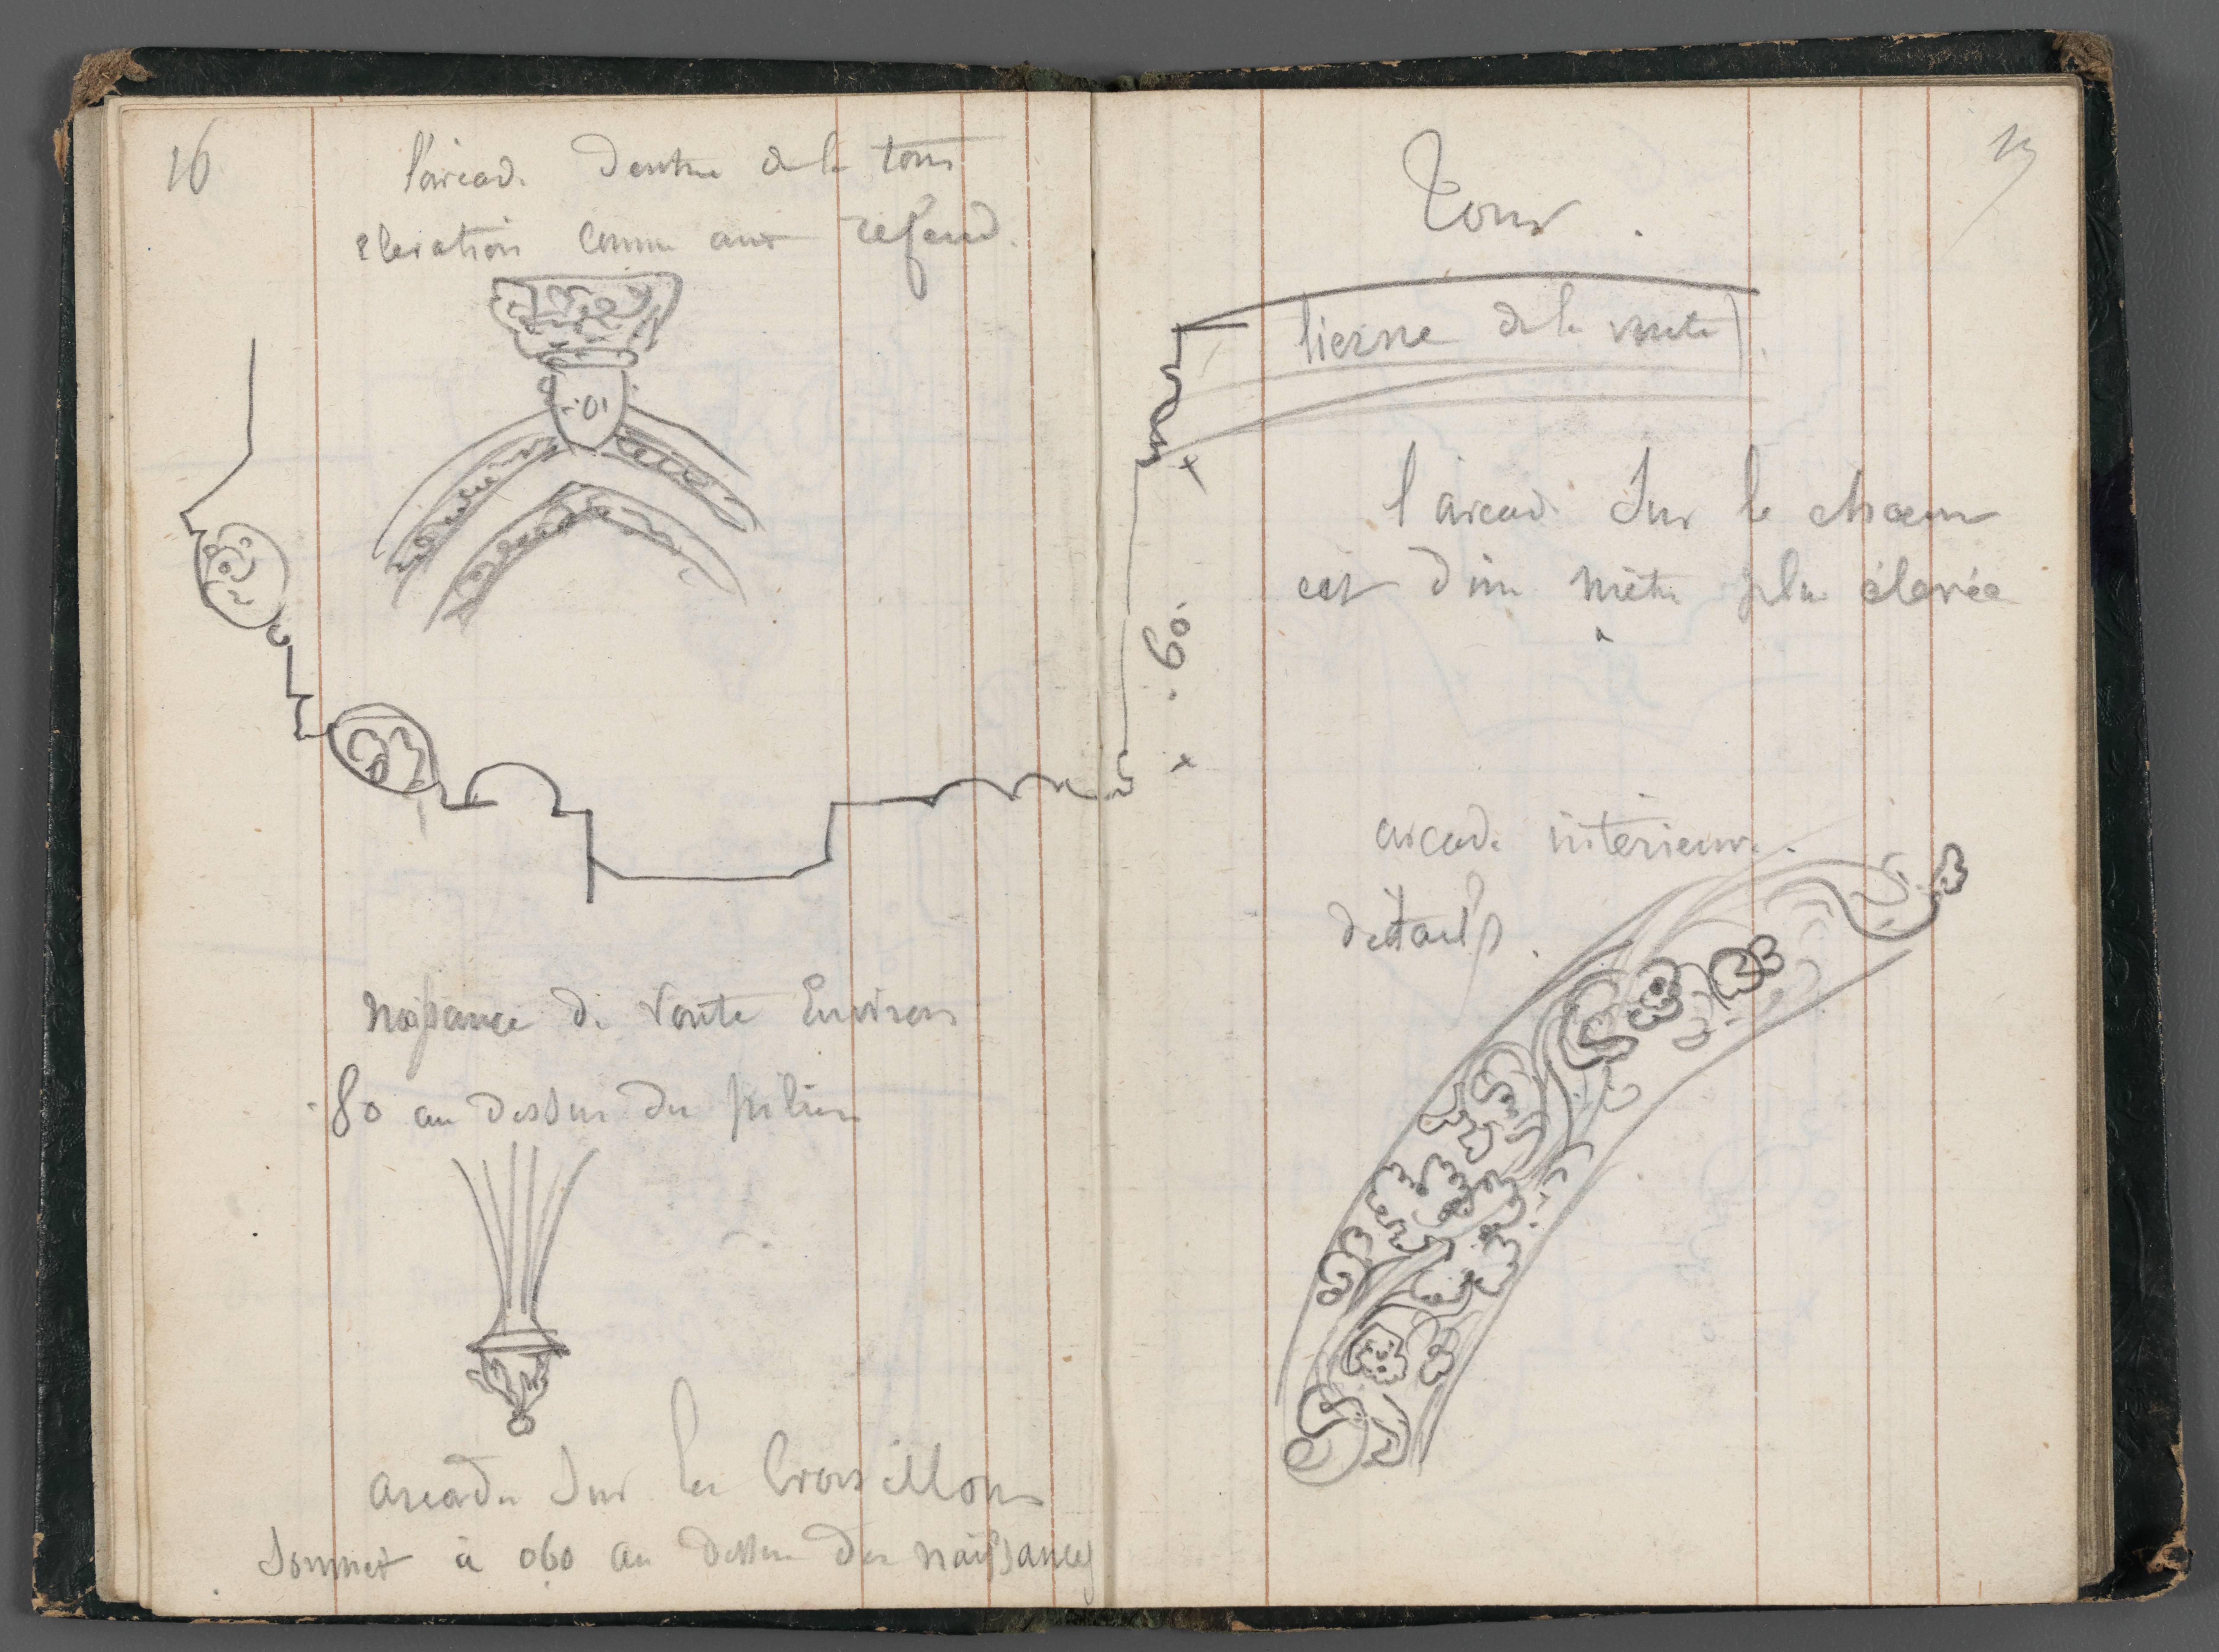 16
l'arcade d'entrée de la tour
elevation comme aux refend.
naissance de voute Environ
.80 au dessus du pilier
arcades sur les Croisillons
Sommet à 060 au dessus des naissances
Tour.
lierne de la voute
.60.
l'arcade sur le choeur
est d'un mètre plus élevée
arcade interieure.
détails.